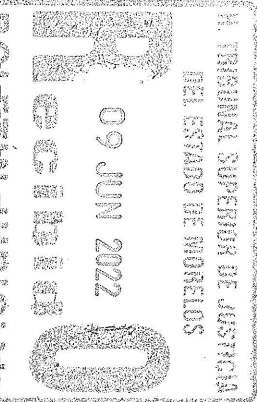 H. TRIBUNAL SUPERIOR DE JUSTICIA
DEL ESTADO DE MORELOS
09 JUN 2022
Recibido